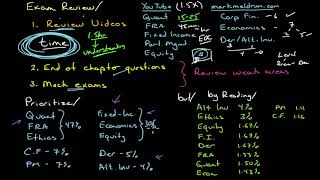 Exam Review/
1. Review Videos
time
1.5hr
understanding
2. End of chapter questions
3. Mock exams
YouTube (1.5X)
Quant 15-25
FRA 45min
Fixed Income
Port. Mgmt.
Equity
markmeldrum.com
Corp Fin. - 6
Economics - 7
Der/Alt. Inv. - 5
Level
Review weak areas
Prioritize/
Quant
FRA 47%
Ethics
C.F - 7%
PM - 7%
Fixed-Inc
Economics
Equity
Der - 5%
Alt Inv - 4%
but/
by Reading/
Alt. Inv 4%
Ethics 3%
Equity 1.67%
F.I. 1.67%
Der 1.67%
FRA 1.33%
Quant 1.50%
Econ 1.43%
PM 1.4
C.F. 1.16